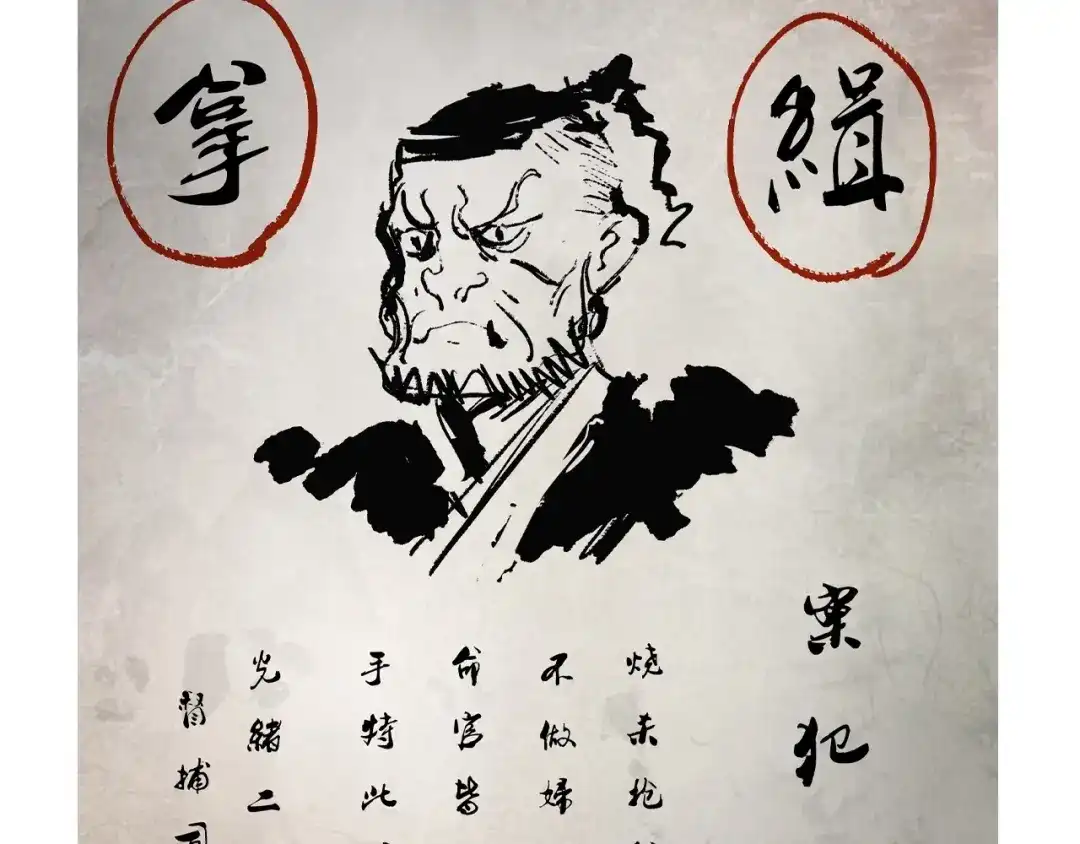 緝拿
案犯
烧杀抢
不做婦
命官皆
手特此
光緒二
督捕司